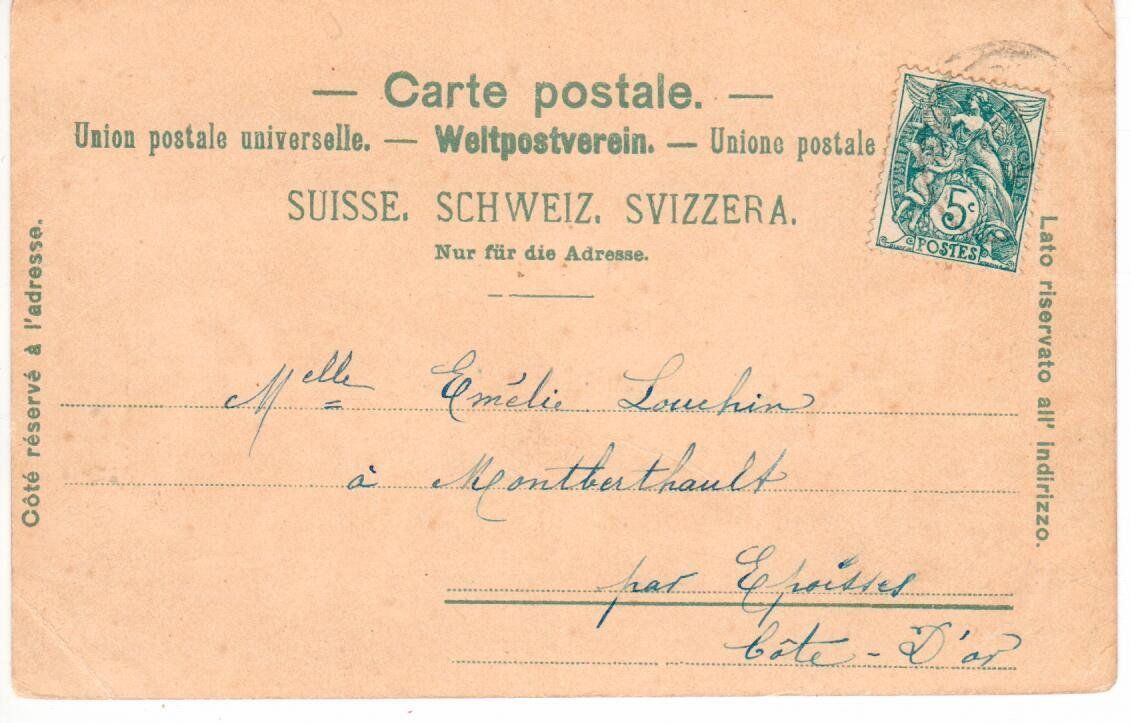 — Carte postale. —
Union postale universelle. — Weltpostverein. — Unione postale
SUISSE. SCHWEIZ. SVIZZERA.
Nur für die Adresse.
Côté réservé à l'adresse.
Lato riservato all' indirizzo.
REPUBLIQUE FRANÇAISE
5c
POSTES
Melle Emélie Louchin
à Montberthault
par Epoisses
Côte-D'or